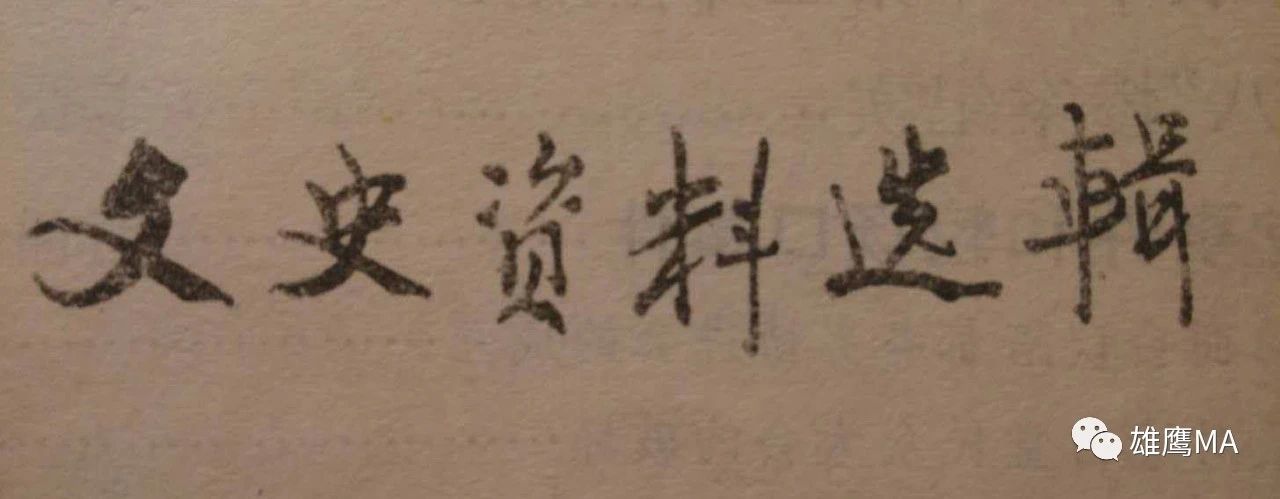 文史资料选辑
雄鹰MA